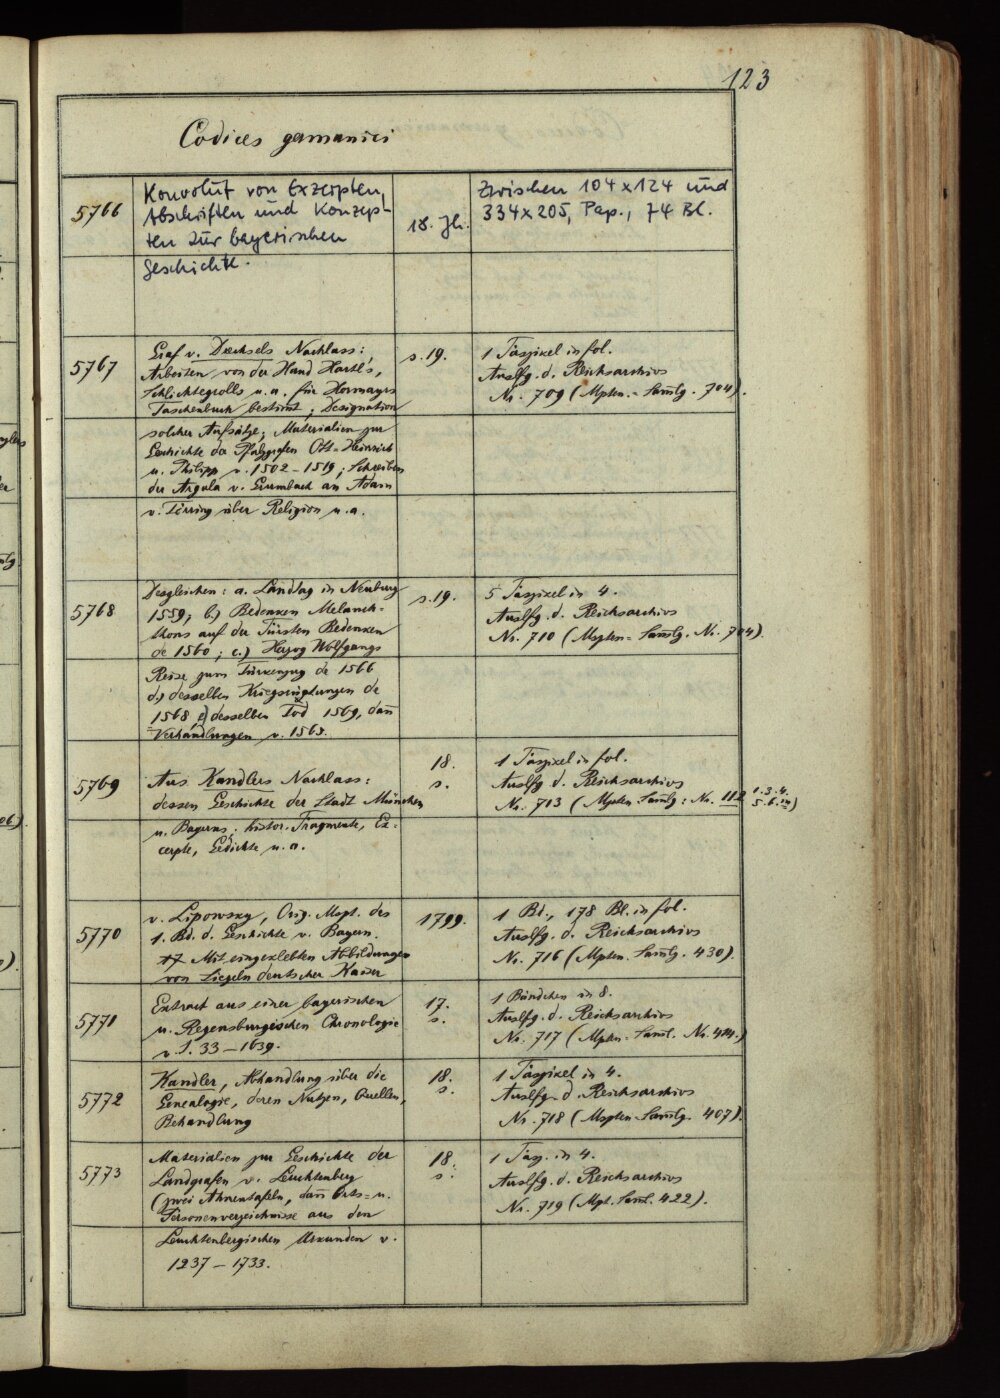 123
Codices germanici
5766
Konvolut von Exzerpten,
Abschriften und Konzep-
ten zur bayerischen
Geschichte.
18. Jh.
Zwischen 104 x 124 und
334 x 205, Pap., 74 Bl.
5767
Graf v. Drechsels Nachlass:
Arbeiten von der Hand Hartl's,
Schlichtegrolls u.a. für Hormayrs
Taschenbuch bestimt; Designation
solcher Aufsätze; Materialien zur
Geschichte der Pfalzgrafen Ott-Heinrich
u. Philipp v. 1502 – 1519; Schreiben
der Argula v. Grumbach an Adam
v. Törring über Religion u.a.
s. 19.
1 Faszikel in fol.
Auslfg. d. Reichsarchivs
Nr. 709 (Mpten.-Samlg. 704).
5768
Desgleichen: a. Landtag in Neuburg
1559; b.) Bedenken Melanch-
thons auf der Fürsten Bedenken
de 1560; c.) Herzog Wolfgangs
Reise zum Türkenzug de 1566
d.) desselben Kriegsrüstungen de
1568, e) desselben Tod 1569, dan
Verhandlungen v. 1565.
s. 19.
5 Faszikel in 4.
Auslfg. d. Reichsarchivs
Nr. 710 (Mspten-Samlg. Nr. 704).
5769
Aus Kandlers Nachlass:
dessen Geschichte der Stadt München
u. Bayerns; histor. Fragmente, Ex-
cerpte, Gedichte u.a.
18.
s.
1 Faszikel in fol.
Auslfg. d. Reichsarchivs
Nr. 713 (Mpten Samlg: Nr. 112 1.3.4.
5.6.)
5770
v. Lipowsky, Orig. Mspt. des
1. Bd. d. Geschichte v. Bayern.
Mit eingeklebten Abbildungen
von Siegeln deutscher Kaiser
1799.
1 Bd., 178 Bl. in fol.
Auslfg. d. Reichsarchivs
Nr. 716 (Mpten. Samlg. 430).
5771
Extract aus einer bayerischen
u. Regensburgischen Chronologie
v. J. 33 – 1639.
17.
s.
1 Bändchen in 8.
Auslfg. d. Reichsarchivs
Nr. 717 (Mpten.-Saml. Nr. 414.)
5772
Kandler, Abhandlung über die
Genealogie, deren Nutzen, Quellen,
Behandlung
18.
s.
1 Faszikel in 4.
Auslfg. d. Reichsarchivs
Nr. 718 (Mspten-Samlg. 407).
5773
Materialien zur Geschichte der
Landgrafen v. Leuchtenberg
(zwei Ahnentafeln, dan Orts- u.
Personenverzeichnisse aus den
Leuchtenbergischen Urkunden v.
1237 – 1733.
18.
s.
1 Fasz. in 4.
Auslfg. d. Reichsarchivs
Nr. 719 (Mpt. Saml. 422).